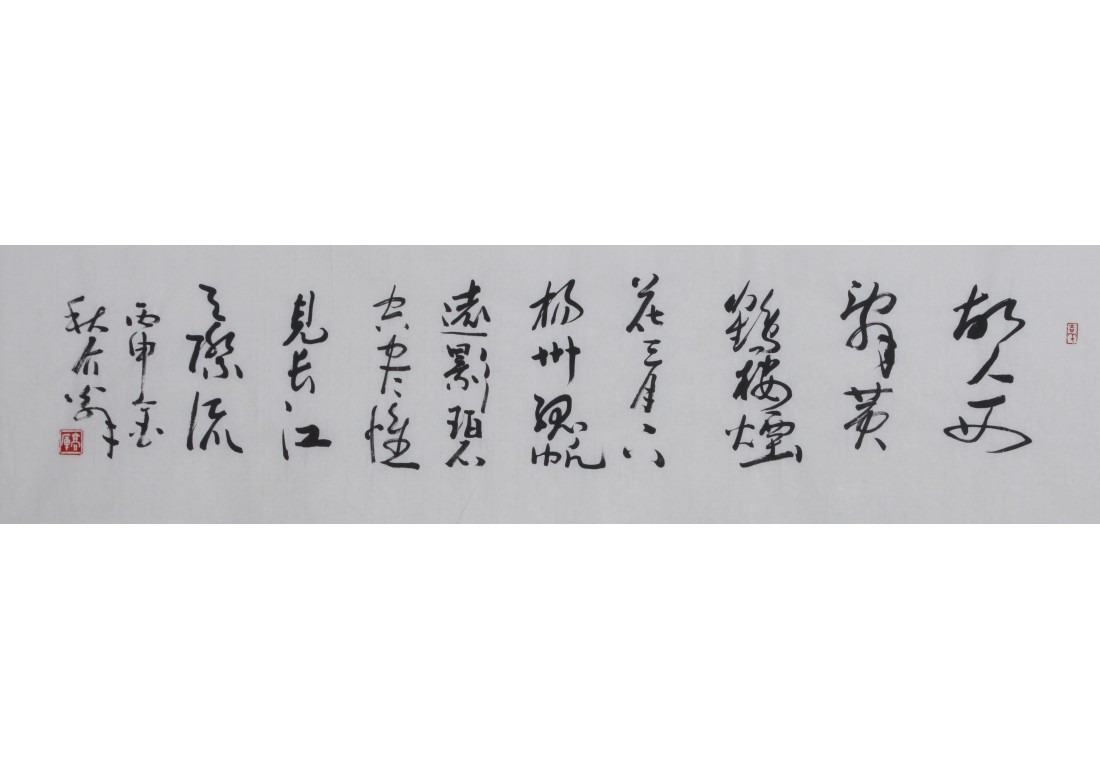 故人西
辭黃
鶴樓煙
花三月下
揚州孤帆
遠影碧
空盡惟
見長江
天際流
丙申金
秋